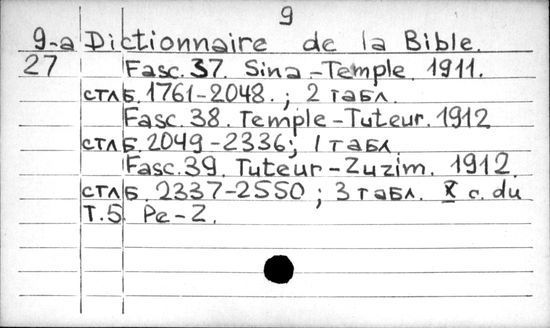 9
9-a Dictionnaire de la Bible.
27 Fasc. 37. Sina-Temple. 1911.
стлб. 1761-2048. ; 2 табл.
Fasc. 38. Temple-Tuteur. 1912
стлб. 2049-2336; 1 табл.
Fasc. 39. Tuteur-Zuzim. 1912.
стлб. 2337-2550 ; 3 табл. X c. du
T.5 Pe-Z.